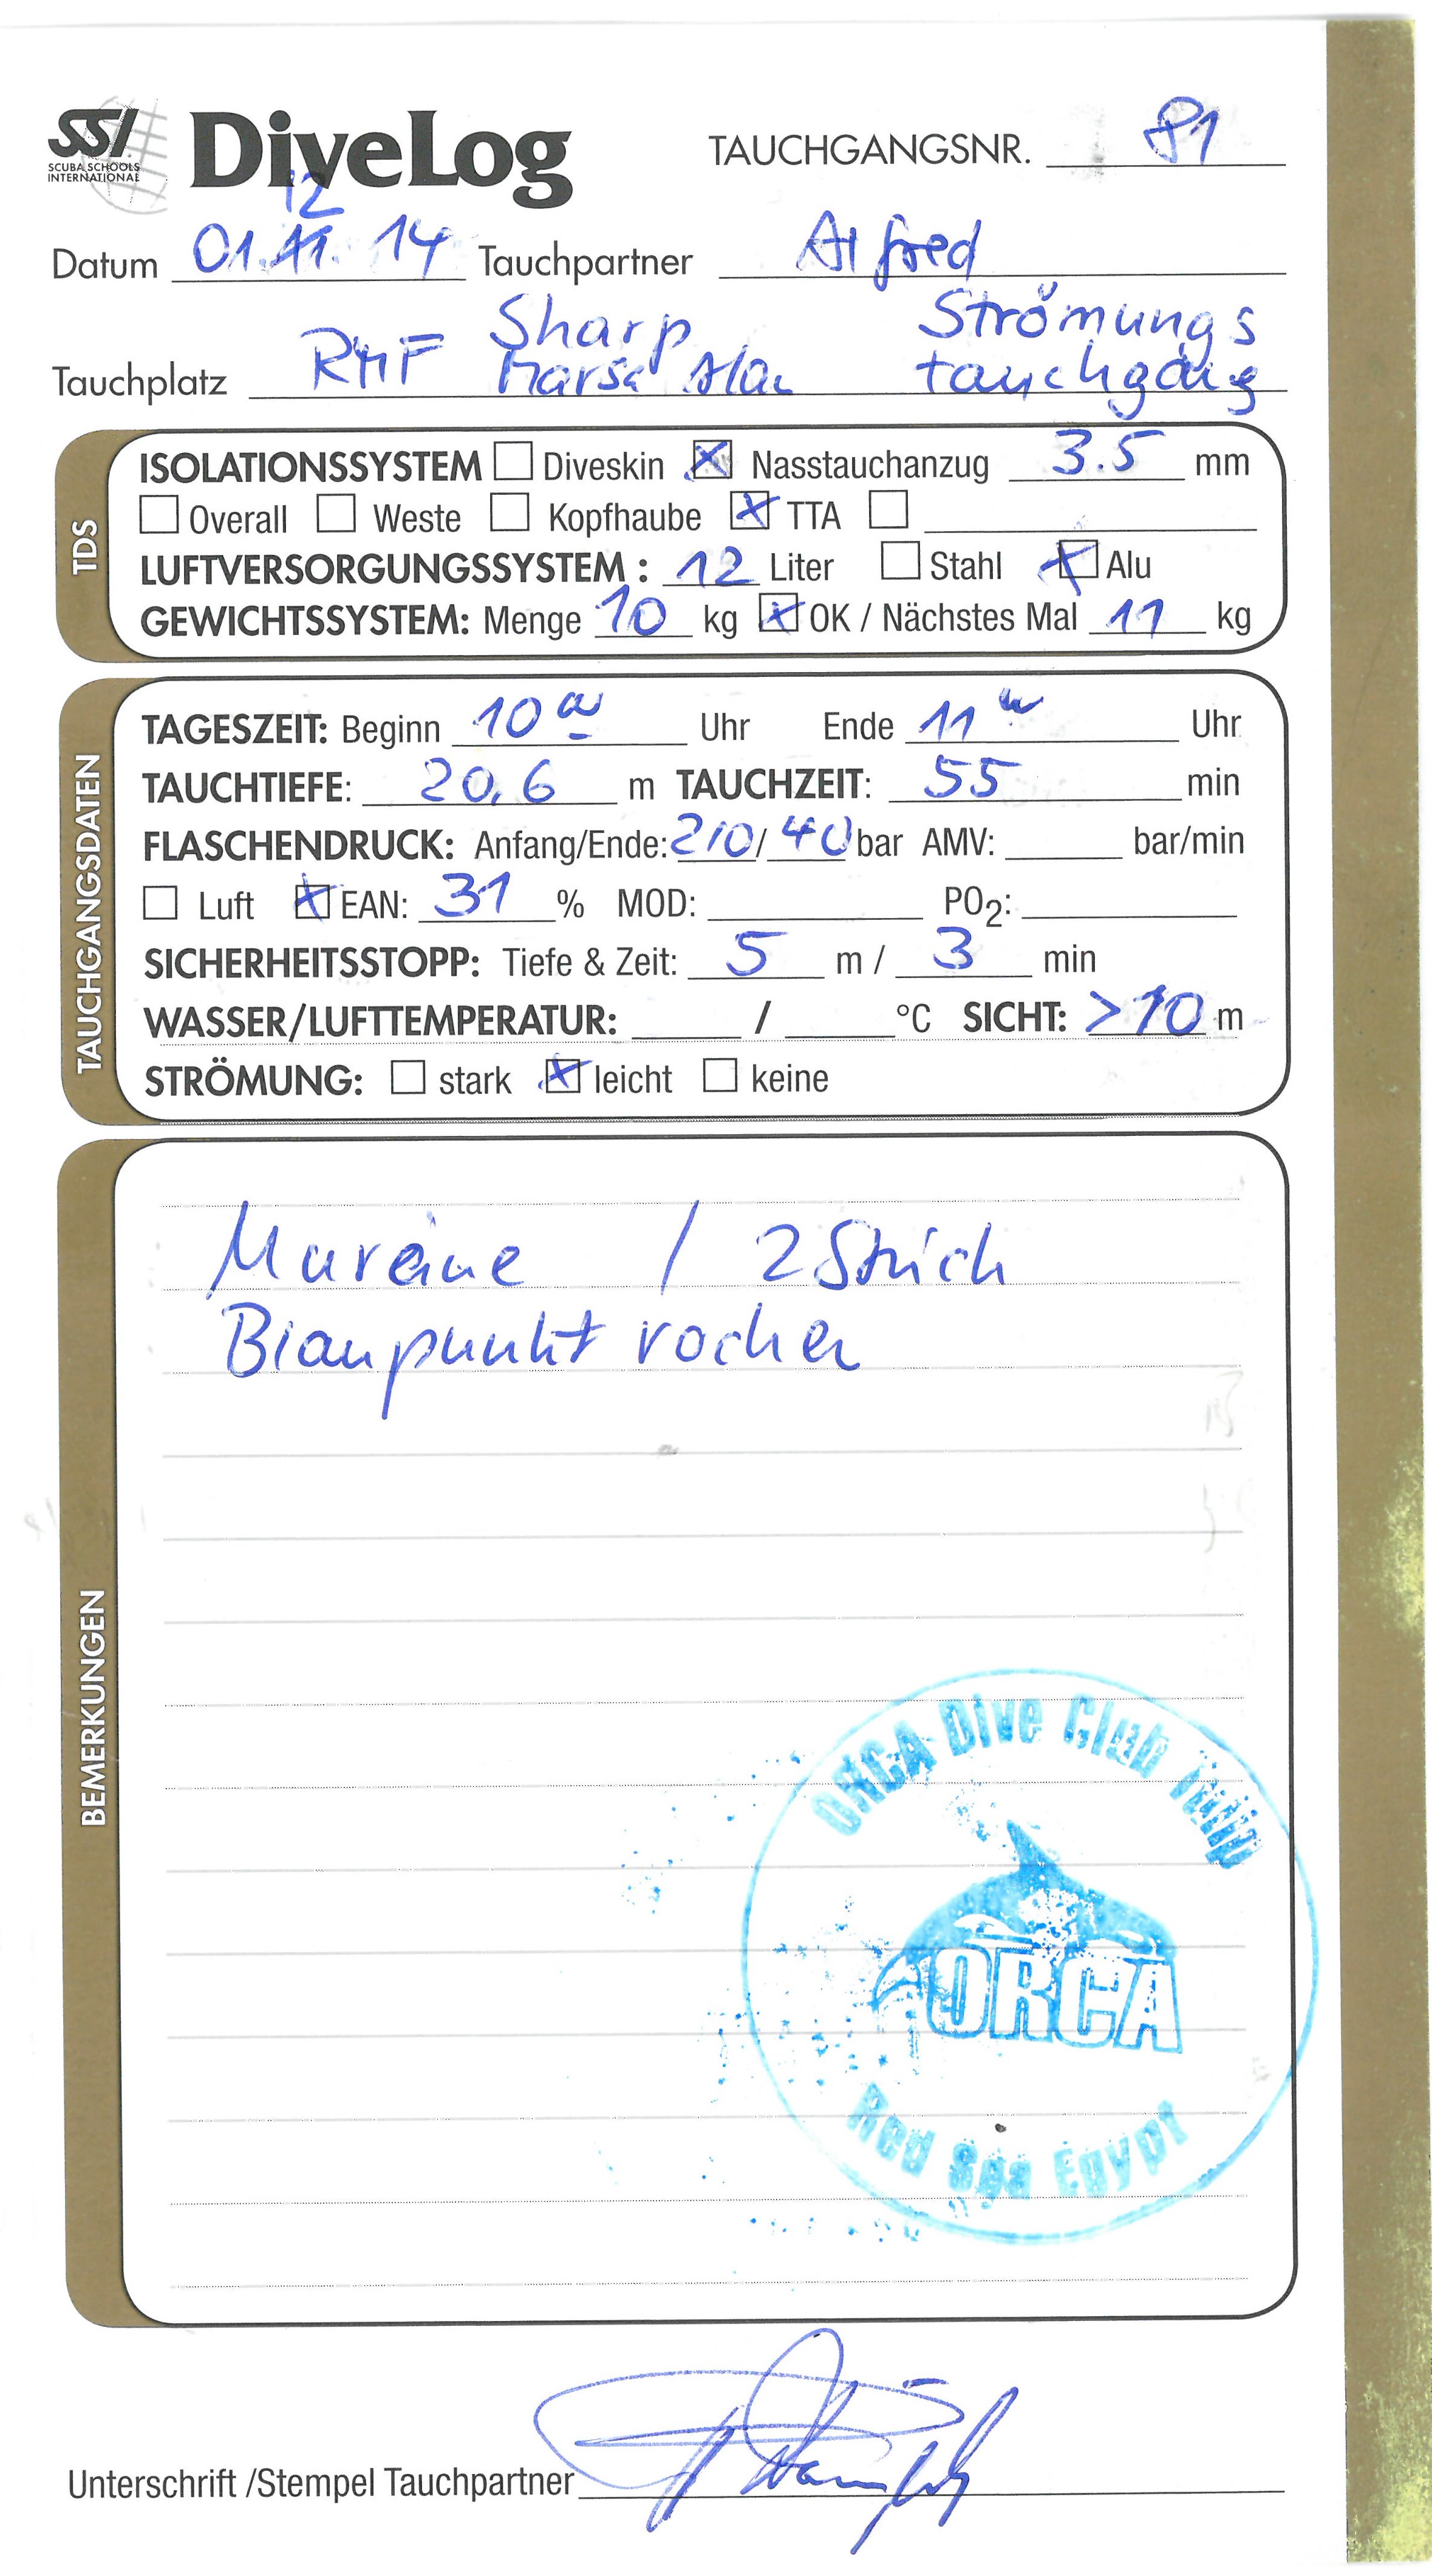 SSI DiveLog TAUCHGANGSNR. 81
SCUBA SCHOOLS
INTERNATIONAL
12
Datum 01.11.14 Tauchpartner Alfred
Sharp Strömungs
Tauchplatz RMF Marsa Alam tauchgang
TDS
ISOLATIONSSYSTEM Diveskin Nasstauchanzug 3.5 mm
Overall Weste Kopfhaube TTA
LUFTVERSORGUNGSSYSTEM : 12 Liter Stahl Alu
GEWICHTSSYSTEM: Menge 10 kg OK / Nächstes Mal 11 kg
TAUCHGANGSDATEN
TAGESZEIT: Beginn 10 Uhr Ende 11 Uhr
TAUCHTIEFE: 20,6 m TAUCHZEIT: 55 min
FLASCHENDRUCK: Anfang/Ende: 210/40 bar AMV: bar/min
Luft EAN: 31 % MOD: PO2:
SICHERHEITSSTOPP: Tiefe & Zeit: 5 m / 3 min
WASSER/LUFTTEMPERATUR: / °C SICHT: >10 m
STRÖMUNG: stark leicht keine
BEMERKUNGEN
Muräne / 2 Stück
Blaupunkt rochen
ORCA Dive Club Tulip
ORCA
Red Sea Egypt
Unterschrift /Stempel Tauchpartner